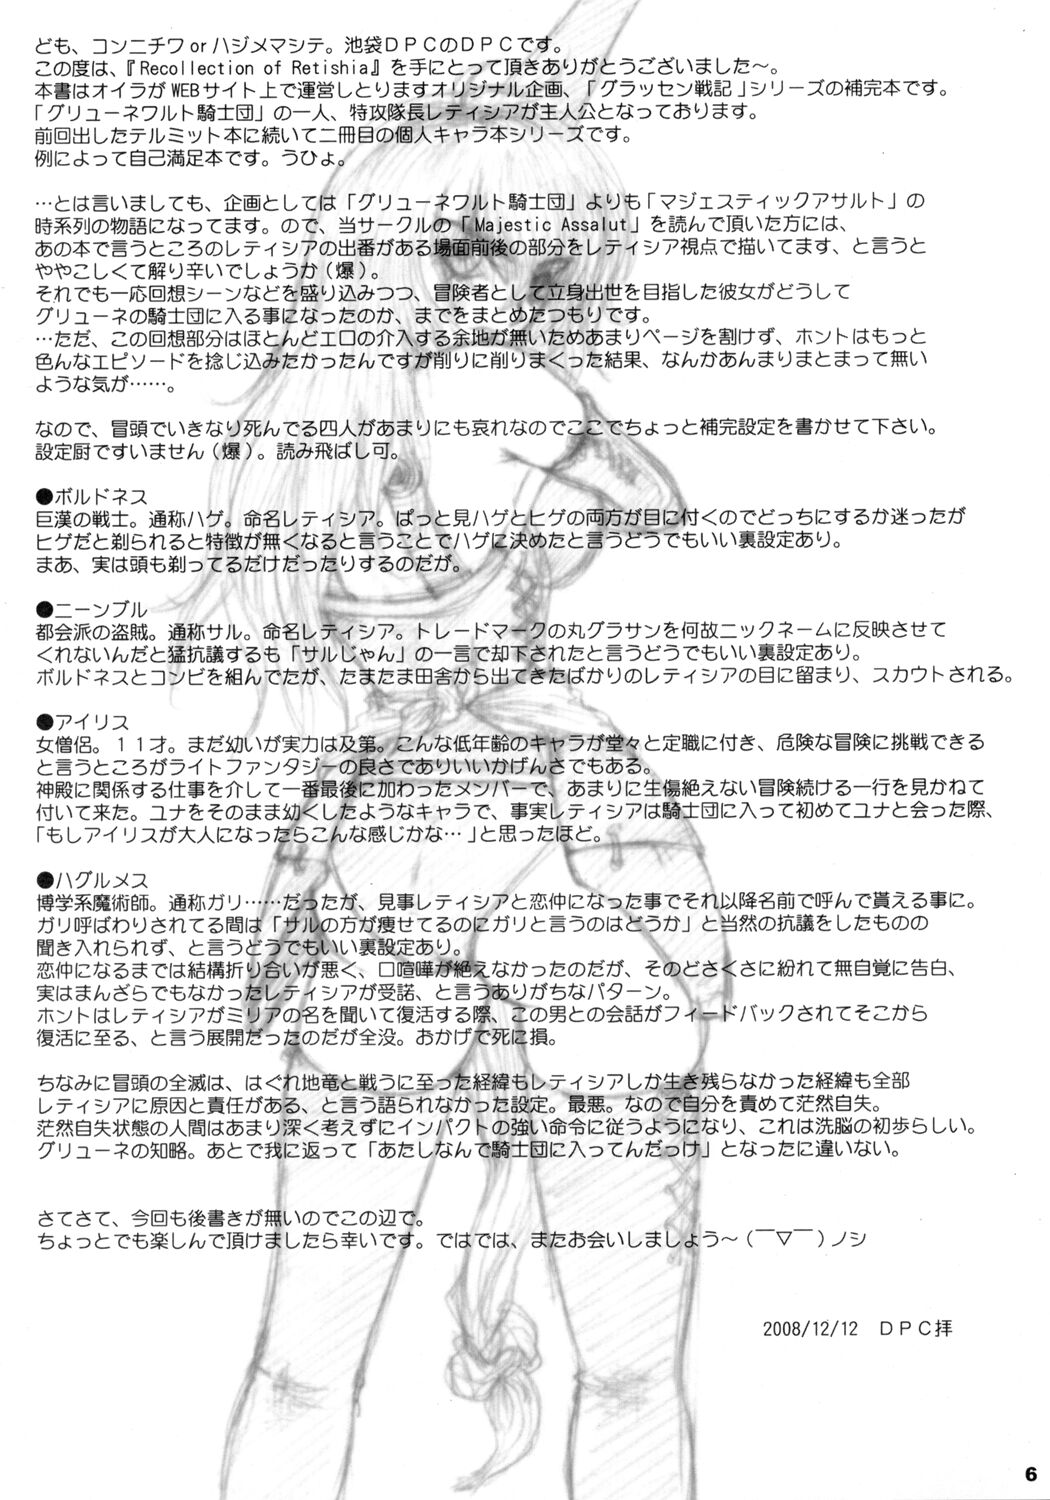 ども、コンニチワorハジメマシテ。池袋DPCのDPCです。
この度は、『Recollection of Retishia』を手にとって頂きありがとうございました～。
本書はオイラがWEBサイト上で運営しとりますオリジナル企画、「グラッセン戦記」シリーズの補完本です。
「グリューネワルト騎士団」の一人、特攻隊長レティシアが主人公となっております。
前回出したテルミット本に続いて二冊目の個人キャラ本シリーズです。
例によって自己満足本です。うひょ。
…とは言いましても、企画としては「グリューネワルト騎士団」よりも「マジェスティックアサルト」の
時系列の物語になってます。ので、当サークルの「Majestic Assalut」を読んで頂いた方には、
あの本で言うところのレティシアの出番がある場面前後の部分をレティシア視点で描いてます、と言うと
ややこしくて解り辛いでしょうか（爆）。
それでも一応回想シーンなどを盛り込みつつ、冒険者として立身出世を目指した彼女がどうして
グリューネの騎士団に入る事になったのか、までをまとめたつもりです。
…ただ、この回想部分はほとんどエロの介入する余地が無いためあまりページを割けず、ホントはもっと
色んなエピソードを捻じ込みたかったんですが削りに削りまくった結果、なんかあんまりまとまって無い
ような気が……。
なので、冒頭でいきなり死んでる四人があまりにも哀れなのでここでちょっと補完設定を書かせて下さい。
設定厨ですいません（爆）。読み飛ばし可。
●ボルドネス
巨漢の戦士。通称ハゲ。命名レティシア。ぱっと見ハゲとヒゲの両方が目に付くのでどっちにするか迷ったが
ヒゲだと剃られると特徴が無くなると言うことでハゲに決めたと言うどうでもいい裏設定あり。
まあ、実は頭も剃ってるだけだったりするのだが。
●ニーンブル
都会派の盗賊。通称サル。命名レティシア。トレードマークの丸グラサンを何故ニックネームに反映させて
くれないんだと猛抗議するも「サルじゃん」の一言で却下されたと言うどうでもいい裏設定あり。
ボルドネスとコンビを組んでたが、たまたま田舎から出てきたばかりのレティシアの目に留まり、スカウトされる。
●アイリス
女僧侶。１１才。まだ幼いが実力は及第。こんな低年齢のキャラが堂々と定職に付き、危険な冒険に挑戦できる
と言うところがライトファンタジーの良さでありいいかげんさでもある。
神殿に関係する仕事を介して一番最後に加わったメンバーで、あまりに生傷絶えない冒険続ける一行を見かねて
付いて来た。ユナをそのまま幼くしたようなキャラで、事実レティシアは騎士団に入って初めてユナと会った際、
「もしアイリスが大人になったらこんな感じかな…」と思ったほど。
●ハグルメス
博学系魔術師。通称ガリ……だったが、見事レティシアと恋仲になった事でそれ以降名前で呼んで貰える事に。
ガリ呼ばわりされてる間は「サルの方が痩せてるのにガリと言うのはどうか」と当然の抗議をしたものの
聞き入れられず、と言うどうでもいい裏設定あり。
恋仲になるまでは結構折り合いが悪く、口喧嘩が絶えなかったのだが、そのどさくさに紛れて無自覚に告白、
実はまんざらでもなかったレティシアが受諾、と言うありがちなパターン。
ホントはレティシアがミリアの名を聞いて復活する際、この男との会話がフィードバックされてそこから
復活に至る、と言う展開だったのだが全没。おかげで死に損。
ちなみに冒頭の全滅は、はぐれ地竜と戦うに至った経緯もレティシアしか生き残らなかった経緯も全部
レティシアに原因と責任がある、と言う語られなかった設定。最悪。なので自分を責めて茫然自失。
茫然自失状態の人間はあまり深く考えずにインパクトの強い命令に従うようになり、これは洗脳の初歩らしい。
グリューネの知略。あとで我に返って「あたしなんで騎士団に入ってんだっけ」となったに違いない。
さてさて、今回も後書きが無いのでこの辺で。
ちょっとでも楽しんで頂けましたら幸いです。ではでは、またお会いしましょう～（￣▽￣）ノシ
2008/12/12　DPC拝
6